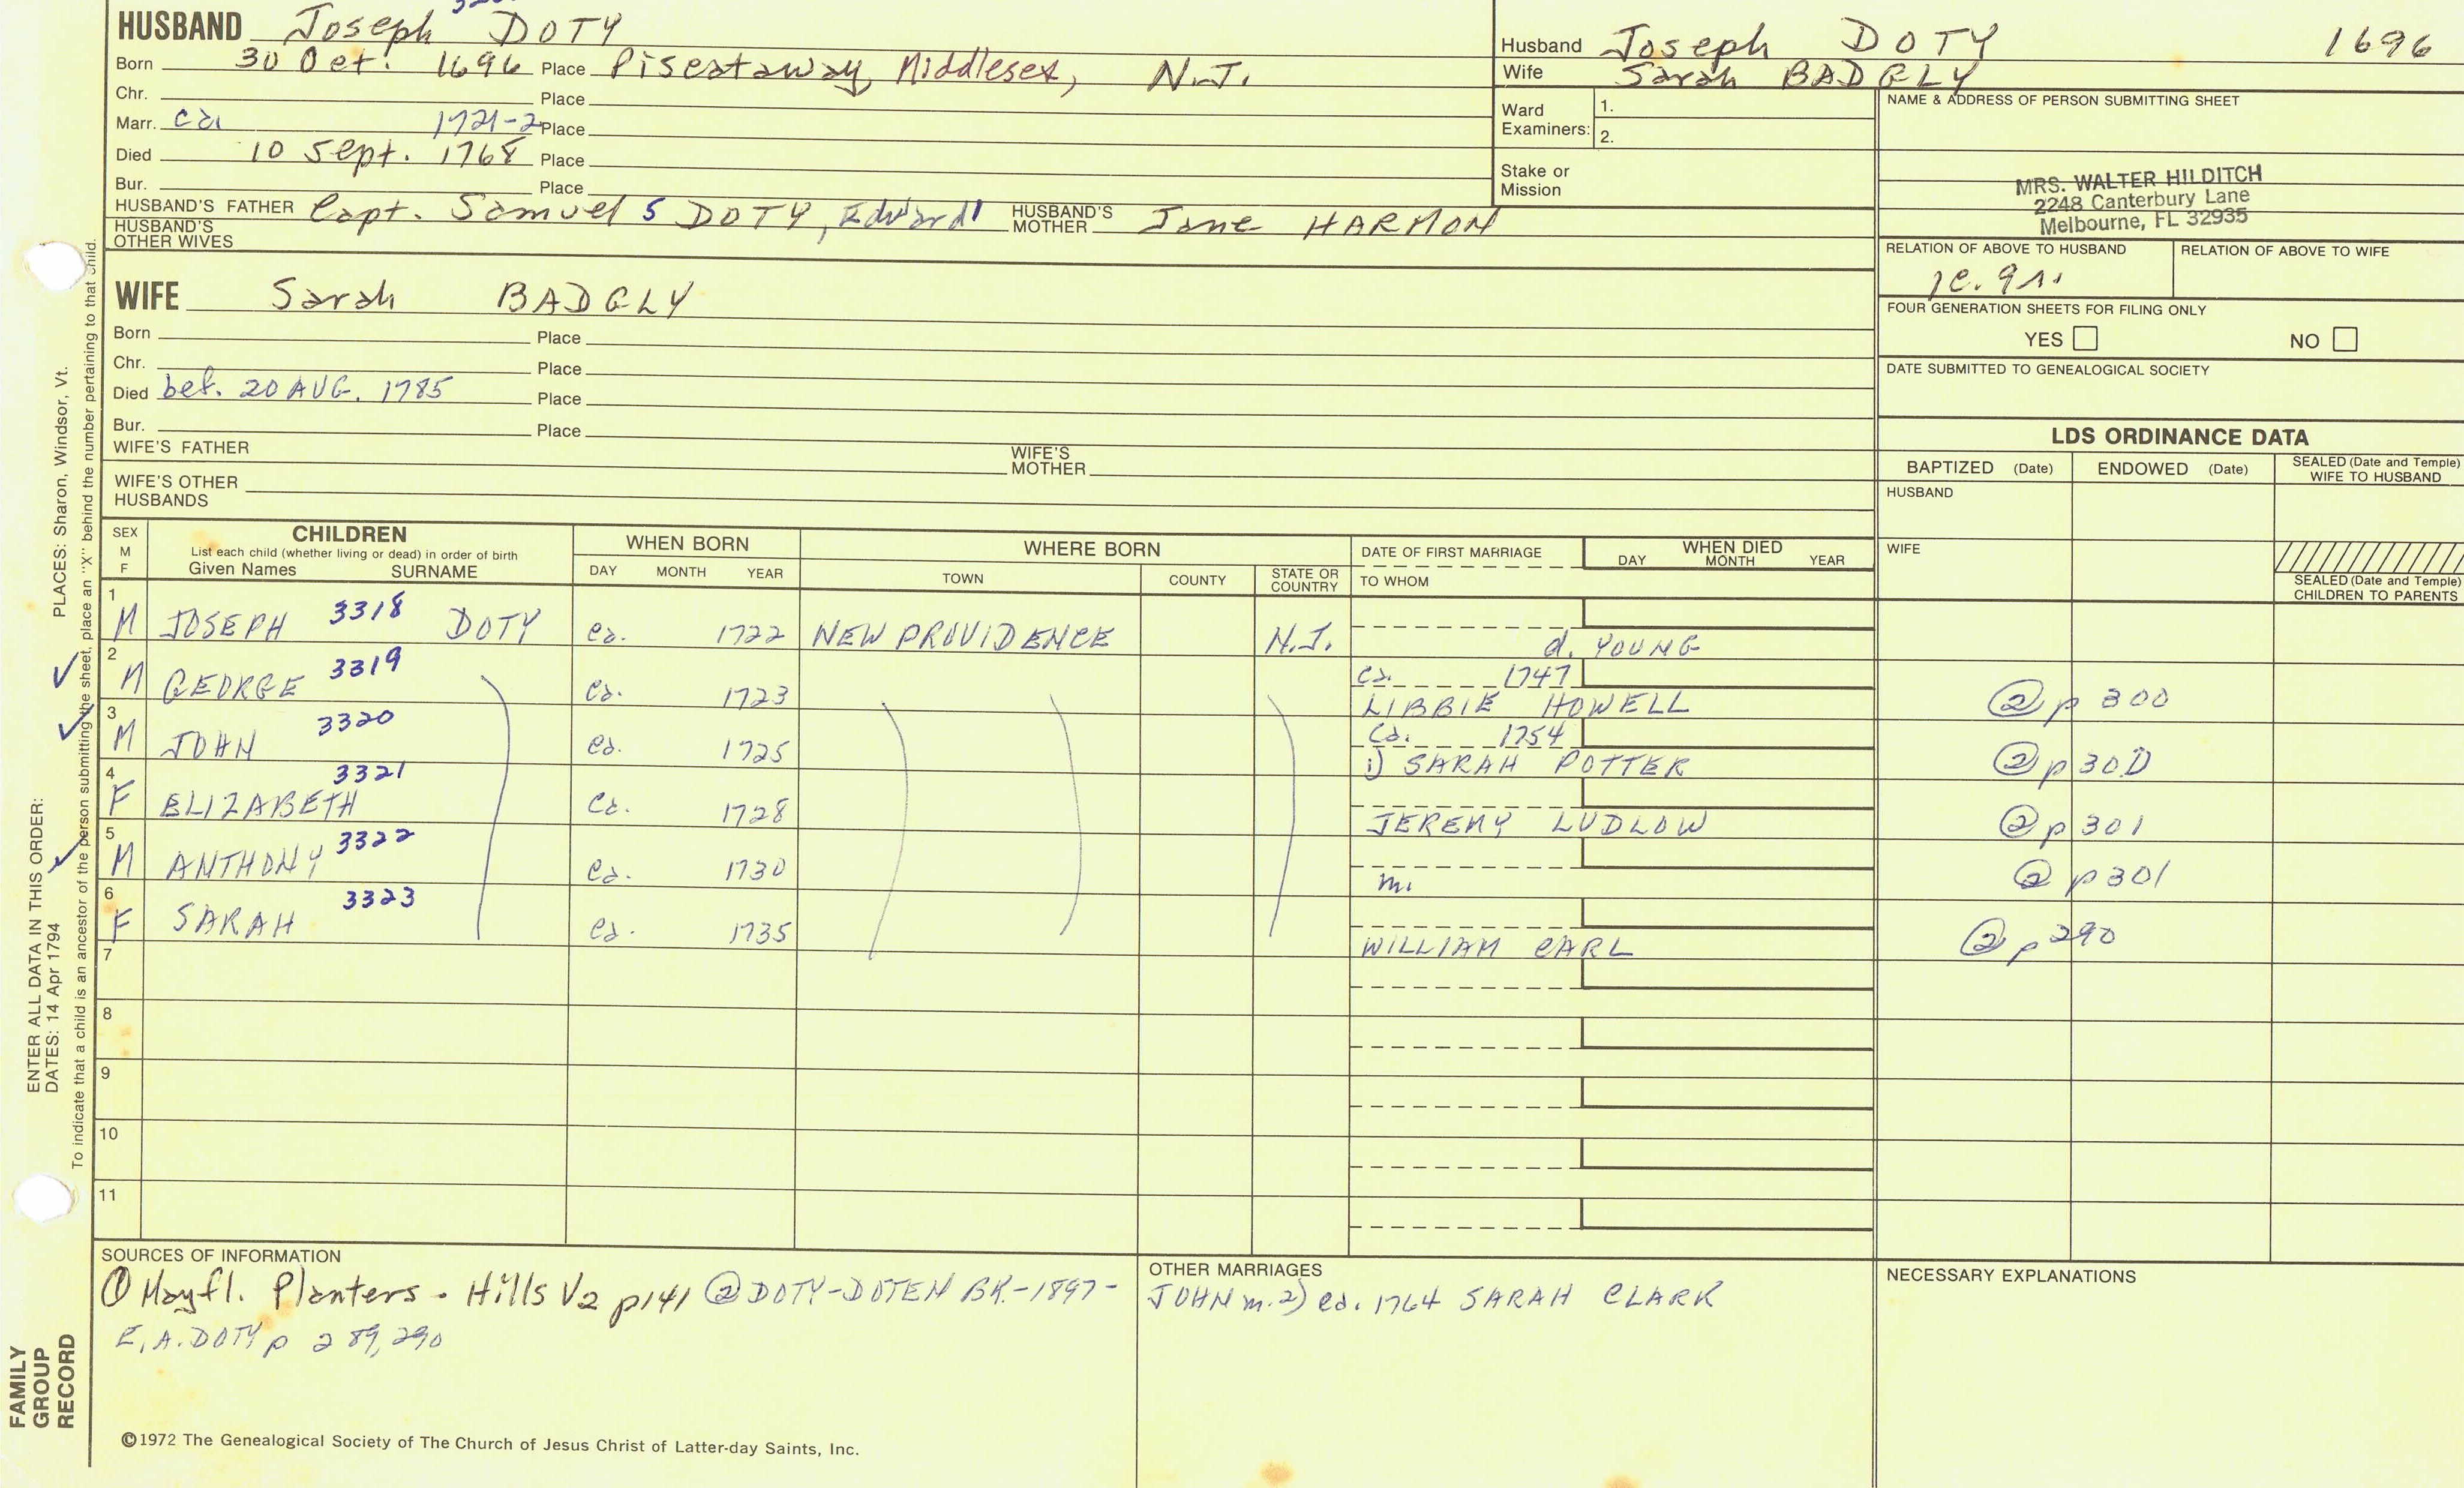 HUSBAND Joseph DOTY
Born 30 Oct. 1696 Place Piscataway, Middlesex, N.J.
Chr. Place
Marr. ca 1721-2 Place
Died 10 Sept. 1768 Place
Bur. Place
HUSBAND'S FATHER Capt. Samuel 5 DOTY, Edward1 HUSBAND'S MOTHER Jane HARMON
HUSBAND'S OTHER WIVES
WIFE Sarah BADGLY
Born Place
Chr. Place
Died bef. 20 AUG. 1785 Place
Bur. Place
WIFE'S FATHER WIFE'S MOTHER
WIFE'S OTHER HUSBANDS
Husband Joseph DOTY 1696
Wife Sarah BADGLY
Ward Examiners: 1.
2.
Stake or Mission
NAME & ADDRESS OF PERSON SUBMITTING SHEET
MRS. WALTER HILDITCH
2248 Canterbury Lane
Melbourne, FL 32935
RELATION OF ABOVE TO HUSBAND RELATION OF ABOVE TO WIFE
FOUR GENERATION SHEETS FOR FILING ONLY
YES NO
DATE SUBMITTED TO GENEALOGICAL SOCIETY
LDS ORDINANCE DATA
BAPTIZED (Date) ENDOWED (Date) SEALED (Date and Temple) WIFE TO HUSBAND
HUSBAND
WIFE
SEALED (Date and Temple) CHILDREN TO PARENTS
SEX M F
CHILDREN
List each child (whether living or dead) in order of birth
Given Names SURNAME
WHEN BORN
DAY MONTH YEAR
WHERE BORN
TOWN COUNTY STATE OR COUNTRY
DATE OF FIRST MARRIAGE
TO WHOM
WHEN DIED
DAY MONTH YEAR
1 M JOSEPH 3318 DOTY ca. 1722 NEW PROVIDENCE N.J. d. YOUNG
2 M GEORGE 3319 ca. 1723 ca. 1747 LIBBIE HOWELL ② p 300
3 M JOHN 3320 ca. 1725 ca. 1754 1) SARAH POTTER ② p 300
4 F ELIZABETH 3321 ca. 1728 JEREMY LUDLOW ② p 301
5 M ANTHONY 3322 ca. 1730 m. ② p 301
6 F SARAH 3323 ca. 1735 WILLIAM CARL ② p 290
7
8
9
10
11
SOURCES OF INFORMATION
① Mayfl. Planters - Hills V2 p141 ② DOTY-DOTEN BK.-1897-
E.A. DOTY p 289, 290
OTHER MARRIAGES
JOHN m. 2) ca. 1764 SARAH CLARK
NECESSARY EXPLANATIONS
©1972 The Genealogical Society of The Church of Jesus Christ of Latter-day Saints, Inc.
FAMILY GROUP RECORD
ENTER ALL DATA IN THIS ORDER:
DATES: 14 Apr 1794
PLACES: Sharon, Windsor, Vt.
To indicate that a child is an ancestor of the person submitting the sheet, place an "X" behind the number pertaining to that child.